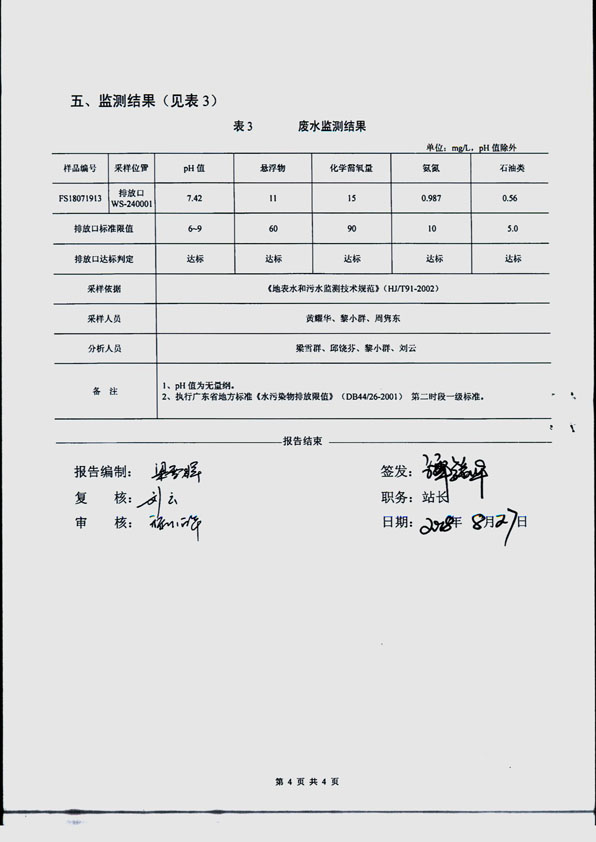 五、监测结果（见表3）
表3 废水监测结果
单位：mg/L，pH 值除外
样品编号 采样位置 pH 值 悬浮物 化学需氧量 氨氮 石油类
FS18071913 排放口 WS-240001 7.42 11 15 0.987 0.56
排放口标准限值 6~9 60 90 10 5.0
排放口达标判定 达标 达标 达标 达标 达标
采样依据 《地表水和污水监测技术规范》（HJ/T91-2002）
采样人员 黄耀华、黎小群、周隽东
分析人员 梁雪群、邱饶芬、黎小群、刘云
备 注 1、pH 值为无量纲。
2、执行广东省地方标准《水污染物排放限值》（DB44/26-2001） 第二时段一级标准。
报告结束
报告编制： 梁雪群 签发：
复 核： 刘云 职务：站长
审 核： 日期：2018年 8月27日
第 4 页 共 4 页